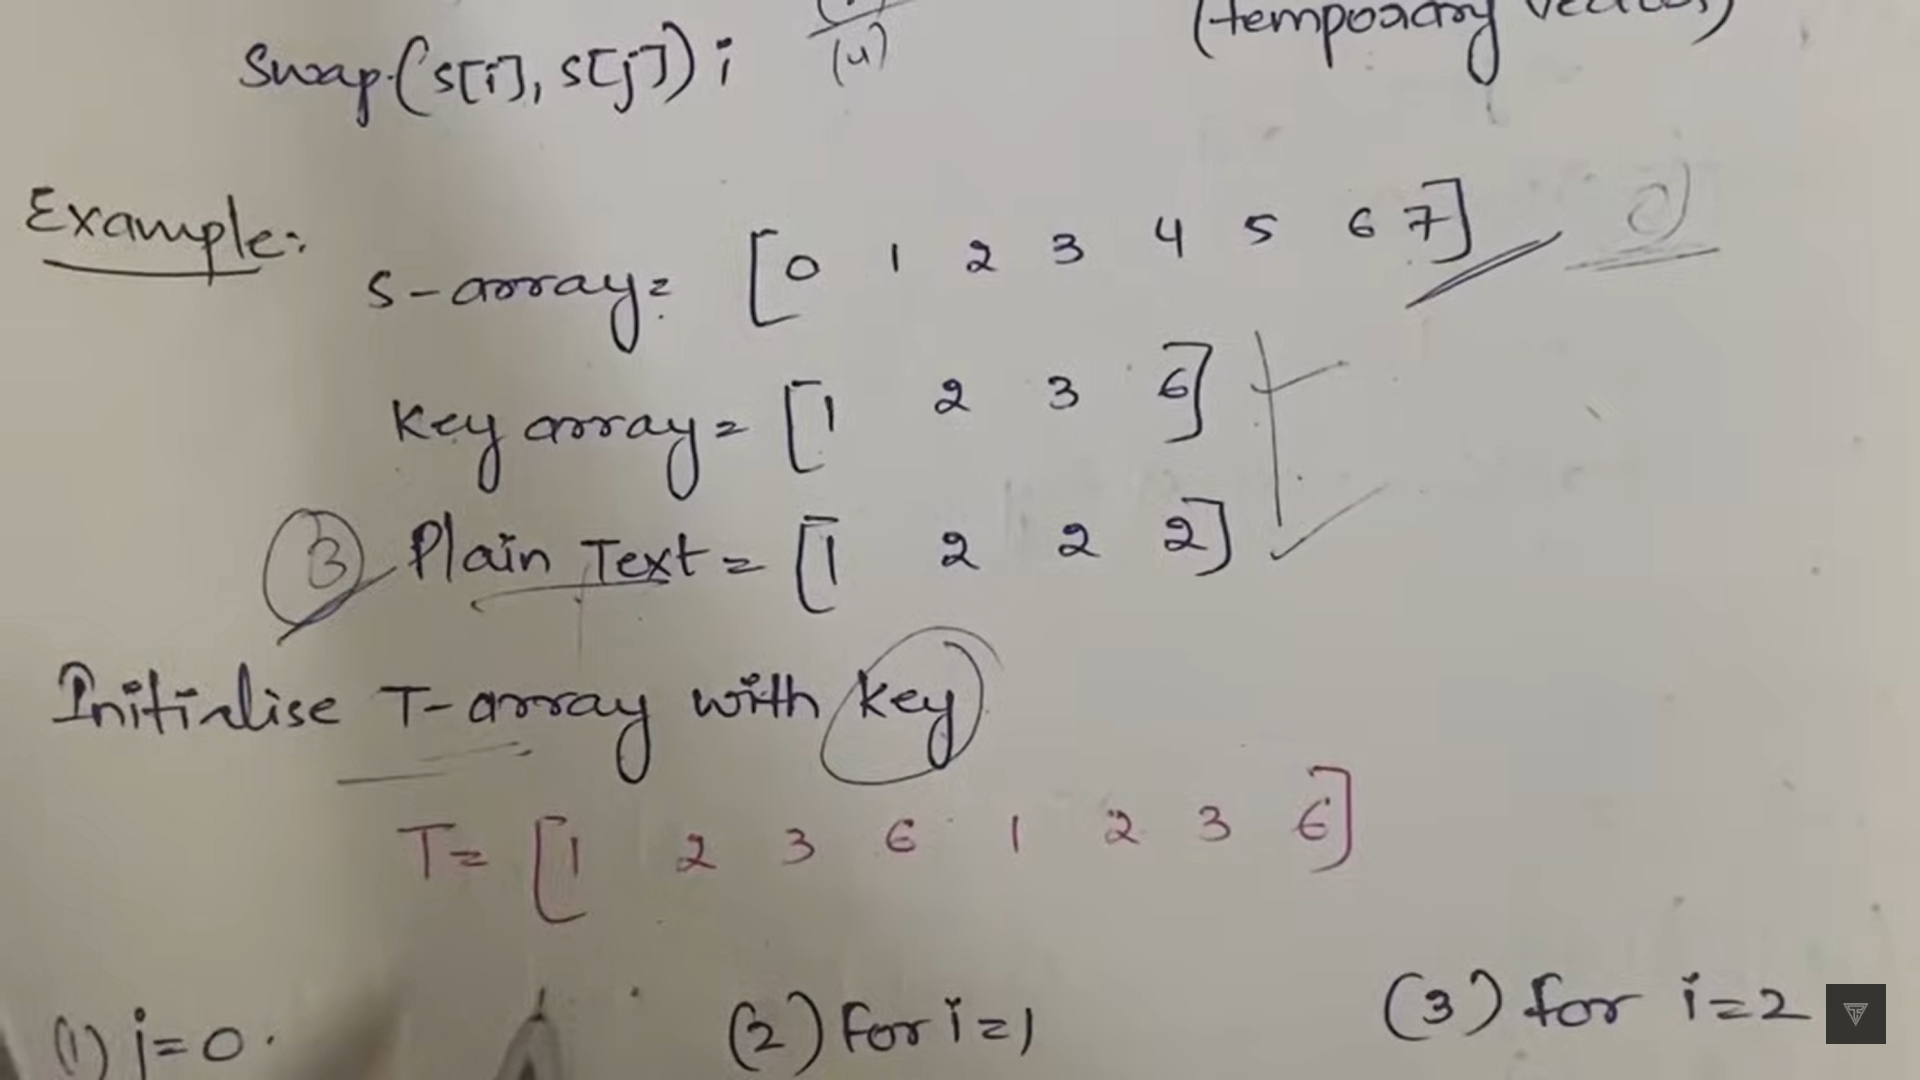 Swap(s[i], s[j]);
(4)
(temporary vector)
Example:
S-array= [0 1 2 3 4 5 6 7]
Key array= [1 2 3 6]
3 Plain Text= [1 2 2 2]
Initialise T-array with key
T= [1 2 3 6 1 2 3 6]
(1) j=0.
(2) for i=1
(3) for i=2